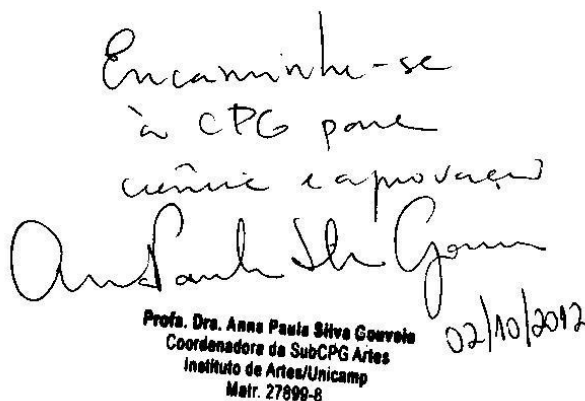 Encaminhe-se
à CPG para
ciência e aprovação
Profa. Dra. Anna Paula Silva Gouveia
Coordenadora da SubCPG Artes
Instituto de Artes/Unicamp
Matr. 27899-8
02/10/2012